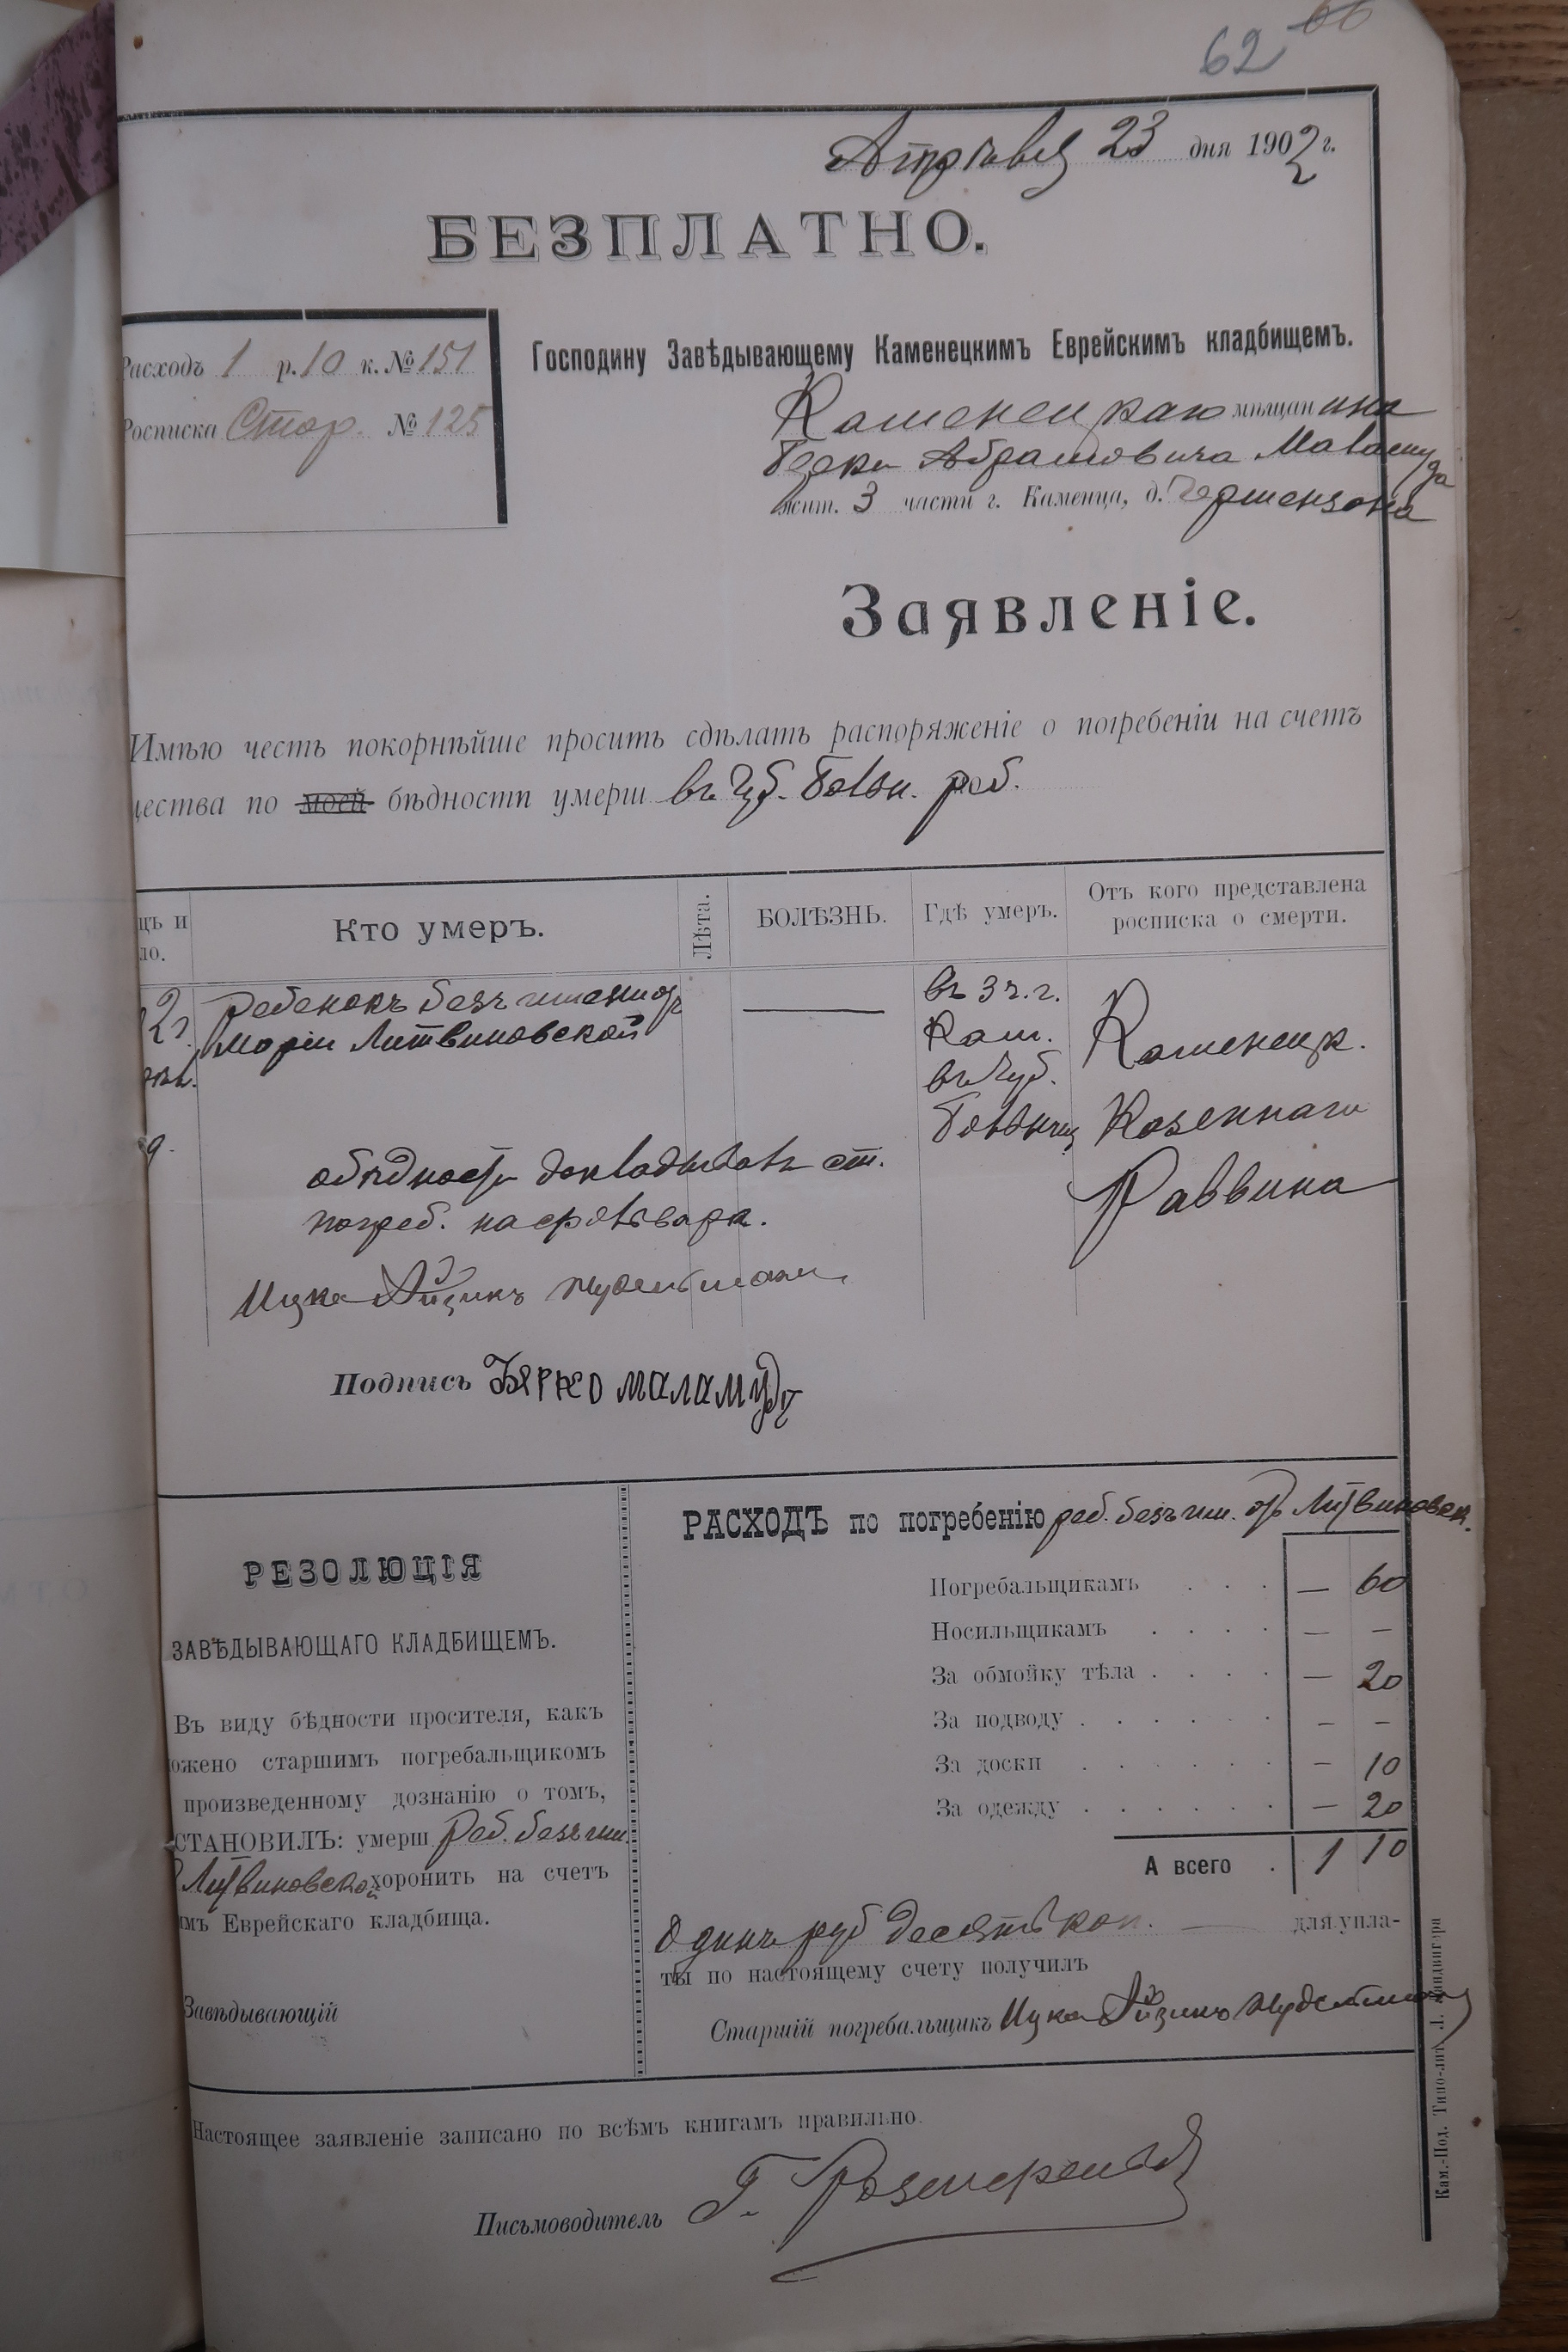 62 66
Апрѣля 23 дня 1902 г.
БЕЗПЛАТНО.
Расходъ 1 р. 10 к. № 151
Росписка Стар. № 125
Господину Завѣдывающему Каменецкимъ Еврейскимъ кладбищемъ.
Каменецкаго мѣщанина
Берки Абрамовича Маламуда
жит. 3 части г. Каменца, д. Гершензона
Заявленіе.
Имѣю честь покорнѣйше просить сдѣлать распоряженіе о погребеніи на счетъ
щества по моей бѣдности умерш въ Губ. больн. реб.
цъ и
ло.
Кто умеръ.
Лѣта.
БОЛѢЗНЬ.
Гдѣ умеръ.
Отъ кого представлена
росписка о смерти.
ребенокъ безъ имени отъ
Маріи Литвиновской
въ 3 ч. г.
Кам.
въ Губ.
больниц
Каменецк.
Казеннаго
Раввина
о бѣдности докладывалъ ст.
погреб.
Ицко Айзикъ
Подпись Бярко маламудъ
РЕЗОЛЮЦІЯ
ЗАВѢДЫВАЮЩАГО КЛАДБИЩЕМЪ.
Въ виду бѣдности просителя, какъ
ожено старшимъ погребальщикомъ
произведенному дознанію о томъ,
СТАНОВИЛЪ: умерш реб. безъ им.
Литвиновской хоронить на счетъ
имъ Еврейскаго кладбища.
Завѣдывающій
РАСХОДЪ по погребенію реб. безъ им. отъ Литвиновск.
Погребальщикамъ . . . — 60
Носильщикамъ . . . . — —
За обмойку тѣла . . . . — 20
За подводу . . . . . . — —
За доски . . . . . . — 10
За одежду . . . . . . — 20
А всего . 1 10
Одинъ руб десять коп. — для упла-
ты по настоящему счету получилъ
Старшій погребальщикъ Ицко Айзикъ
Настоящее заявленіе записано по всѣмъ книгамъ правильно.
Письмоводитель Г.
Кам.-Под. Типо-лит. Л.